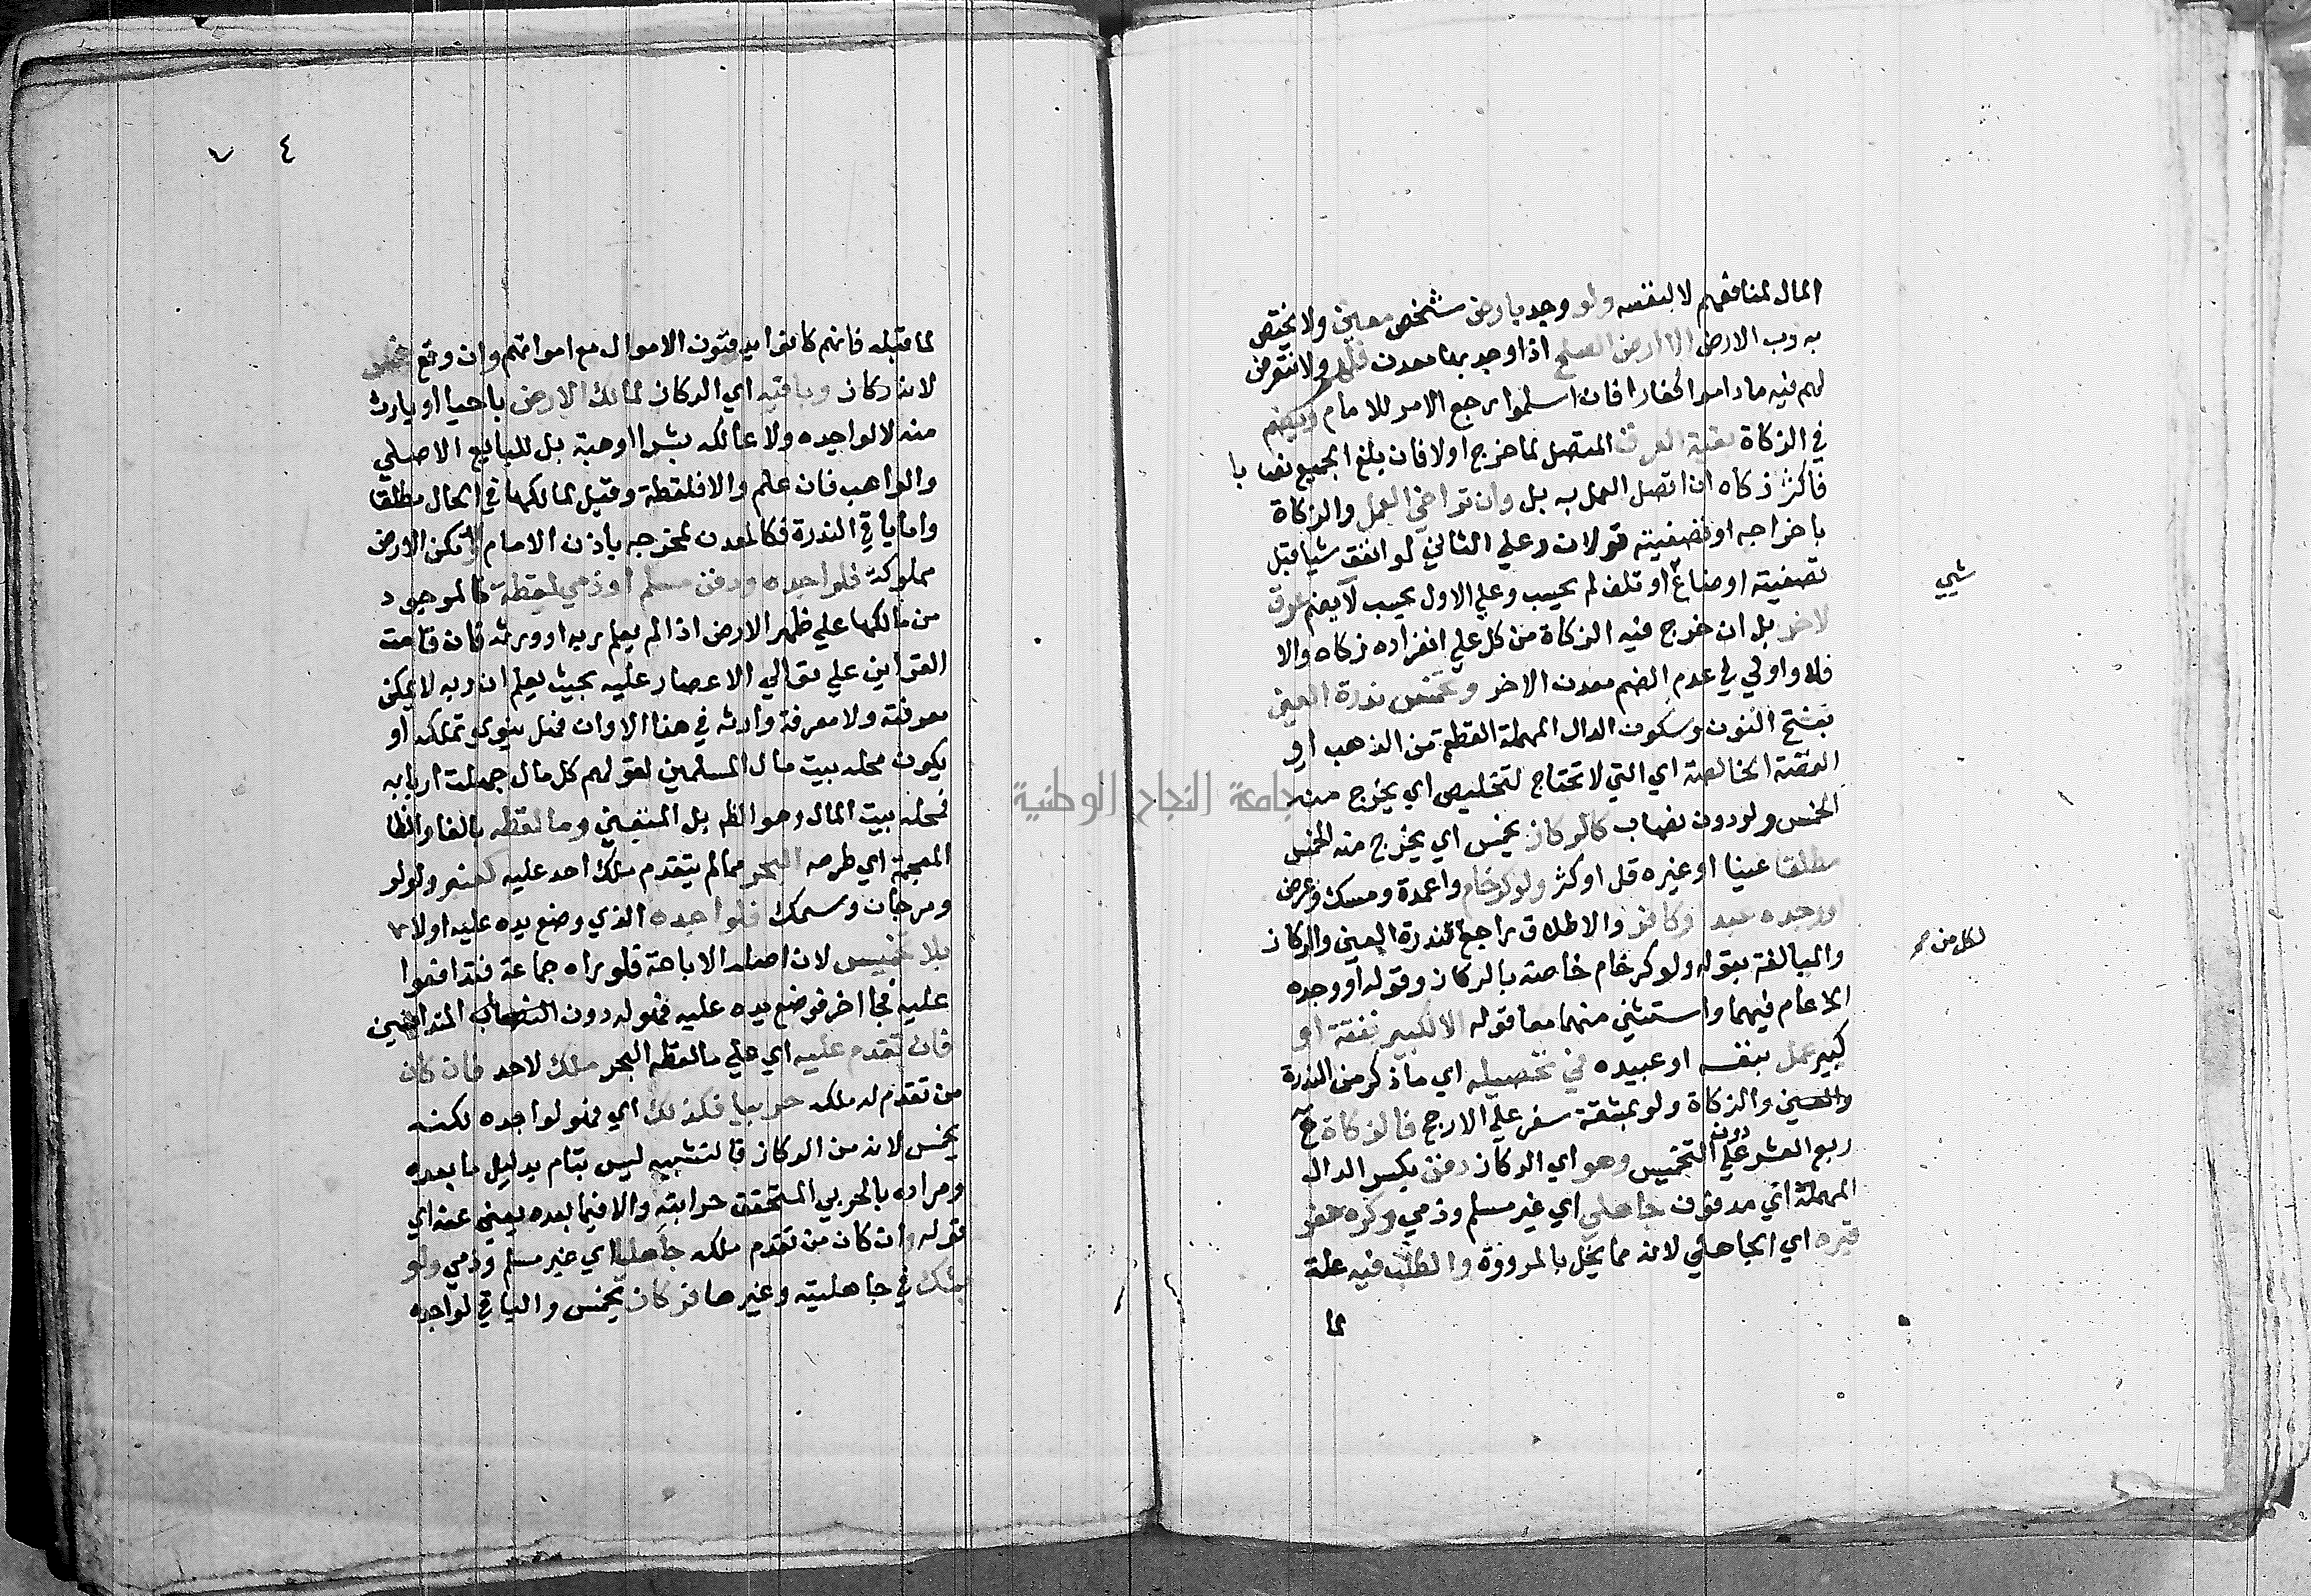 المال لمنافعهم لا لبفسه ولو وجد بارض شخص معين ولا يختص
به رب الارض الا ارض الصلح اذا وجد بها معدن فلهم ولا نتعرض
لهم فيه ما داموا كفارا فان اسلموا رجع الامر للامام ويضم
في الزكاة بقية العرق المتصل لما خرج اولا فان بلغ الجميع نصابا
فاكثر زكاه ان اتصل العمل به بل وان تراخي العمل والزكاة
باخراجه او تصفيته قولان وعلي الثاني لو انفق شيا قبل
تصفيته او ضاع او تلف لم يحسب وعلي الاول يحسب لا يضم عرق
شيي
لاخر بل ان خرج فيه الزكاة من كل علي انفراده زكاه والا
فلا واولي في عدم الضم معدن الاخر وتخمس ندرة العين
بفتح النون وسكون الدال المهملة القطعة من الذهب او
الفضة الخالصة اي التي لا تحتاج لتخليص اي يخرج منه
الخمس ولو دون نصاب كالركاز يخمس اي يخرج منه الخمس
مطلقا عينا او غيره قل او كثر ولو كرخام واعمدة ومسك وعرض
او وجده عبد او كافر والاطلاق راجع لندرة العين والركاز
لكل من صح
والمبالغة بقوله ولو كرخام خاصة بالركاز وقوله او وجده
الا عام فيهما واستثني منهما معا قوله الا لكبير نفقة او
كبير عمل بنفسه او عبيده في تحصيله اي ما ذكر من الندرة
والعين والزكاة ولو بمشقة سفر علي الارجح فالزكاة
ربع العشر دون التخميس وهو اي الركاز دفن بكسر الدال
المهملة اي مدفون جاهلي اي غير مسلم وذمي وكره حفر
قبره اي الجاهلي لانه مما يخل بالمروؤة والطلب فيه علة
لما
٤ ٧
لما قبله فانهم كانوا يدفنون الاموال مع امواتهم وان وقع خمس
لانه ركاز وباقيه اي الركاز لمالك الارض باحيا او بارث
منه لا لواجده ولا لمالكه بشرا او هبة بل للبايع الاصلي
والواهب فان علم والا فلقطة وقيل لمالكها في الحال مطلقا
واما باقي الندرة فكالمعدن لمخرجه باذن الامام الا تكن الارض
مملوكة فلواجده ودفن مسلم او ذمي لقطة كالموجود
من مالكها علي ظهر الارض اذا لم يعلم ربه او وارثه فان قامت
القراين علي توالي الاعصار عليه بحيث يعلم ان ربه لا يمكن
معرفته ولا معرفة وارثه في هذا الاوان فهل ينوي تملكه او
يكون محله بيت مال المسلمين لقولهم كل مال جهلت اربابه
فمحله بيت المال وهو الظ بل المتعين وما لفظه بالفا والظا
المعجمة اي طرحه البحر مما لم يتقدم ملك احد عليه كعنبر ولولو
ومرجان وسمك فلواجده الذي وضع يده عليه اولا
بلا تخميس لان اصله الاباحة فلو راه جماعة فتدافعوا
عليه فجا اخر فوضع يده عليه فهو له دون المتدافعين
فان تقدم عليه اي علي ما لفظه البحر ملك لاحد فان كان
من تقدم له ملكه حربيا فكذلك اي فهو لواجده لكنه
يخمس لانه من الركاز فالتشبيه ليس بتام بدليل ما بعده
ومراده بالحربي المتحقق حرابته والا فيما بعده يغني عنه اي
قوله وان كان من تقدم ملكه جاهليا اي غير مسلم وذمي ولو
بشك في جاهليته وغيرها فركاز يخمس والباقي لواجده
جامعة النجاح الوطنية